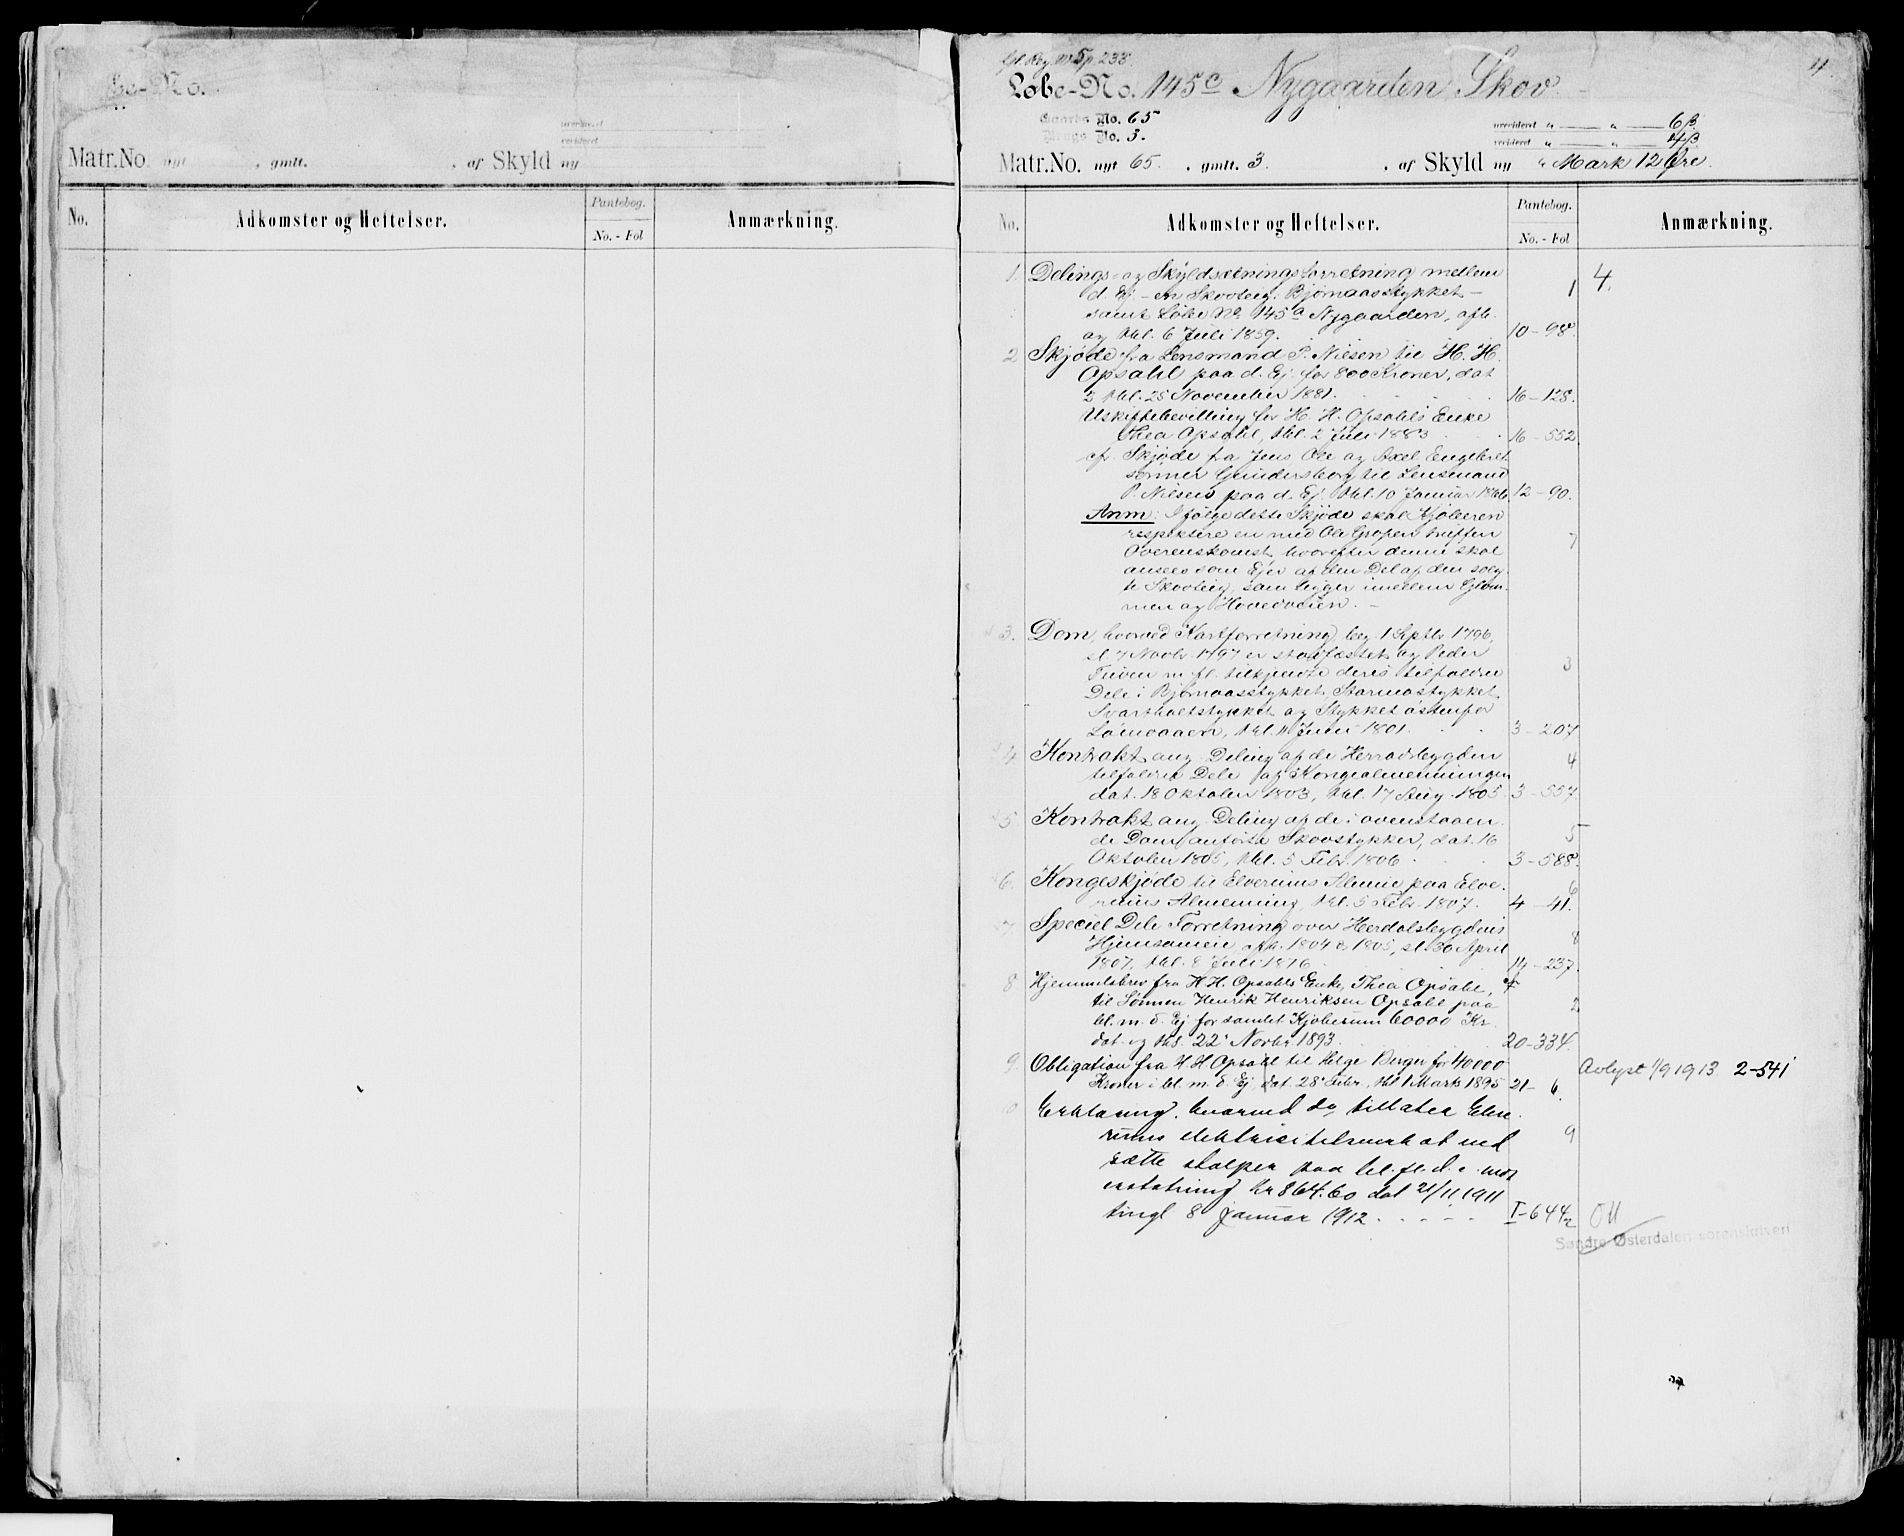 Løbe-No.
urevideret
revideret
Matr.No. nyt . gmlt. . af Skyld ny
No. Adkomster og Heftelser. Pantebog. No. - Fol Anmærkning.
4
Løbe-No. 145c Nygaarden, Skov.
Gaards No. 65
Brugs No. 3.
urevideret " — " — 6β
revideret " — " — 4β
Matr.No. nyt 65. . gmlt. 3. . af Skyld ny " Mark 12 Øre.
No. Adkomster og Heftelser. Pantebog. No. - Fol Anmærkning.
1. Delings- og Skyldsætningsforretning mellem
d. Ej. – en Skovteig, Bjørnaasstykket – 1 4.
samt Løbe No 145a Nygaarden, afh.
og thl. 6 Juli 1859. 10-98.
2 Skjøde fra Lensmand P. Nilsen til H. H.
Opsahl paa d. Ej. for 800 Kroner, dat
& thl. 25 November 1881. 16-128.
Uskiftebevilling for H. H. Opsahls Enke
Thea Opsahl, thl. 2 Juli 1883 16-552
cfr. Skjøde fra Jens Ole og Axel Engebret
sønner Grindersborg til Lensmand
P. Nilsen paa d. Ej. thl. 10 Januar 1866 12-90.
Anm: Ifølge dette Skjøde skal Kjøberen
respektere en med Ole Gropen truffen 7
Overenskomst, hvorefter denne skal
ansees som Ejer af den Del af den solg-
te Skovteig, som ligger imellem Glom-
men og Hovedveien. –
3. Dom, hvorved Kartforretning, beg. 1 Septbr 1796,
sl. 7 Novbr. 1797 er stadfæstet og Peder
m. fl. tilkjendte deres tilfaldne 3
Dele i Bjørnaasstykket, Starmostykket,
Svartholtstykket og Stykket østenfor
thl. 11 Juni 1801. 3-207
4 Kontrakt ang. Deling af de Herradsbygden 4
tilfaldne Dele af Kongealmenningen
dat. 18 Oktober 1803, thl. 17 Aug. 1805. 3-557.
5. Kontrakt ang. Deling af de i ovenstaaen-
de Dom anførte Skovstykker, dat. 16 5
Oktober 1805, thl. 5 Febr. 1806 3-588.
6. Kongeskjøde til Elverums Almue paa Elve- 6
rums Almenning, thl. 5 Febr. 1807. 4-41.
7 Speciel Dele Forretning over Herdalsbygdens
Hjemsameie, afh. 1804 & 1805, sl. 30 April 8
1807, thl. 8 Juli 1876 14-237.
8 Hjemmelsbrev fra H. H. Opsahls Enke, Thea Opsahl,
til Sønnen Henrik Henriksen Opsahl paa 2
bl. m. d. Ej for samlet Kjøbesum 60000 Kr.
dat. og thl. 22 Novbr. 1893. 20-334.
9. Obligation fra H. H. Opsahl til Helge Berger for 40000
Kroner i bl. m. d. Ej, dat. 28 Febr, thl 1 Marts 1895 21-6. Avlyst 1/9 1913 2-541
10 Erklæring, hvorved der tillates Elve-
rums elektricitetsverk at ned 9
sætte stolper paa bl. fl. d. e. mot
erstatning kr 864.60 dat 21/11 1911
tingl 8 januar 1912. I-644
Søndre Østerdalen sorenskriveri